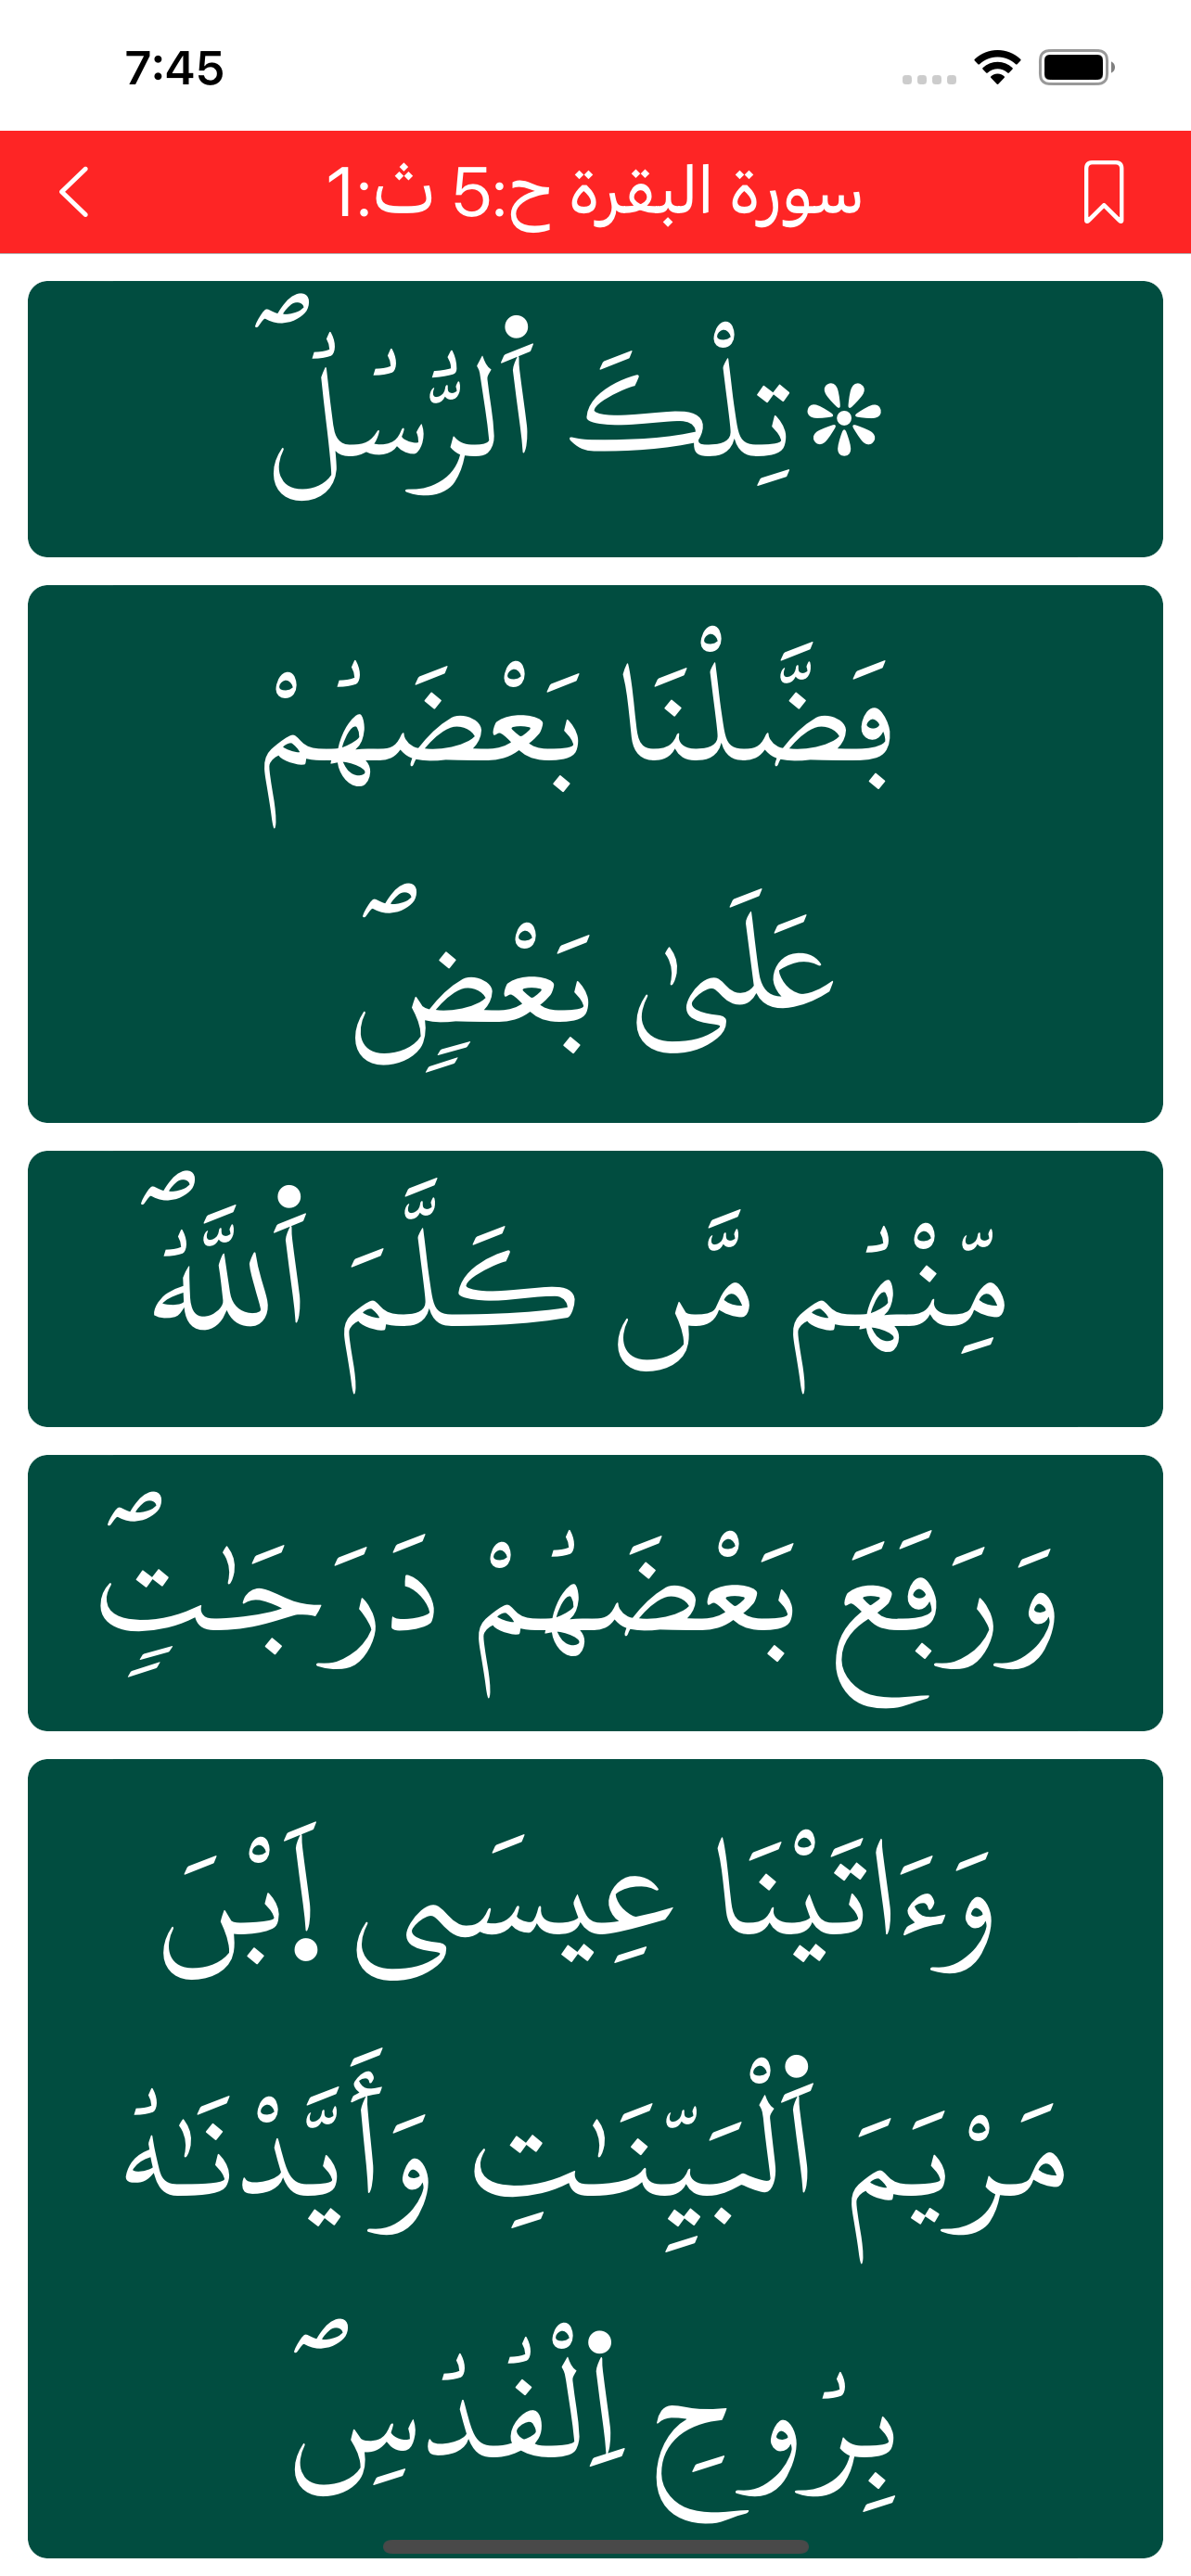 7:45
سورة البقرة ح:5 ث:1
۞تِلْكَ اَ۬لرُّسُلُۖ
فَضَّلْنَا بَعْضَهُمْ
عَلَىٰ بَعْضٖۖ
مِّنْهُم مَّن كَلَّمَ اَ۬للَّهُۖ
وَرَفَعَ بَعْضَهُمْ دَرَجَٰتٖۖ
وَءَاتَيْنَا عِيسَى اَ۪بْنَ
مَرْيَمَ اَ۬لْبَيِّنَٰتِ وَأَيَّدْنَٰهُ
بِرُوحِ اِ۬لْقُدُسِۖ